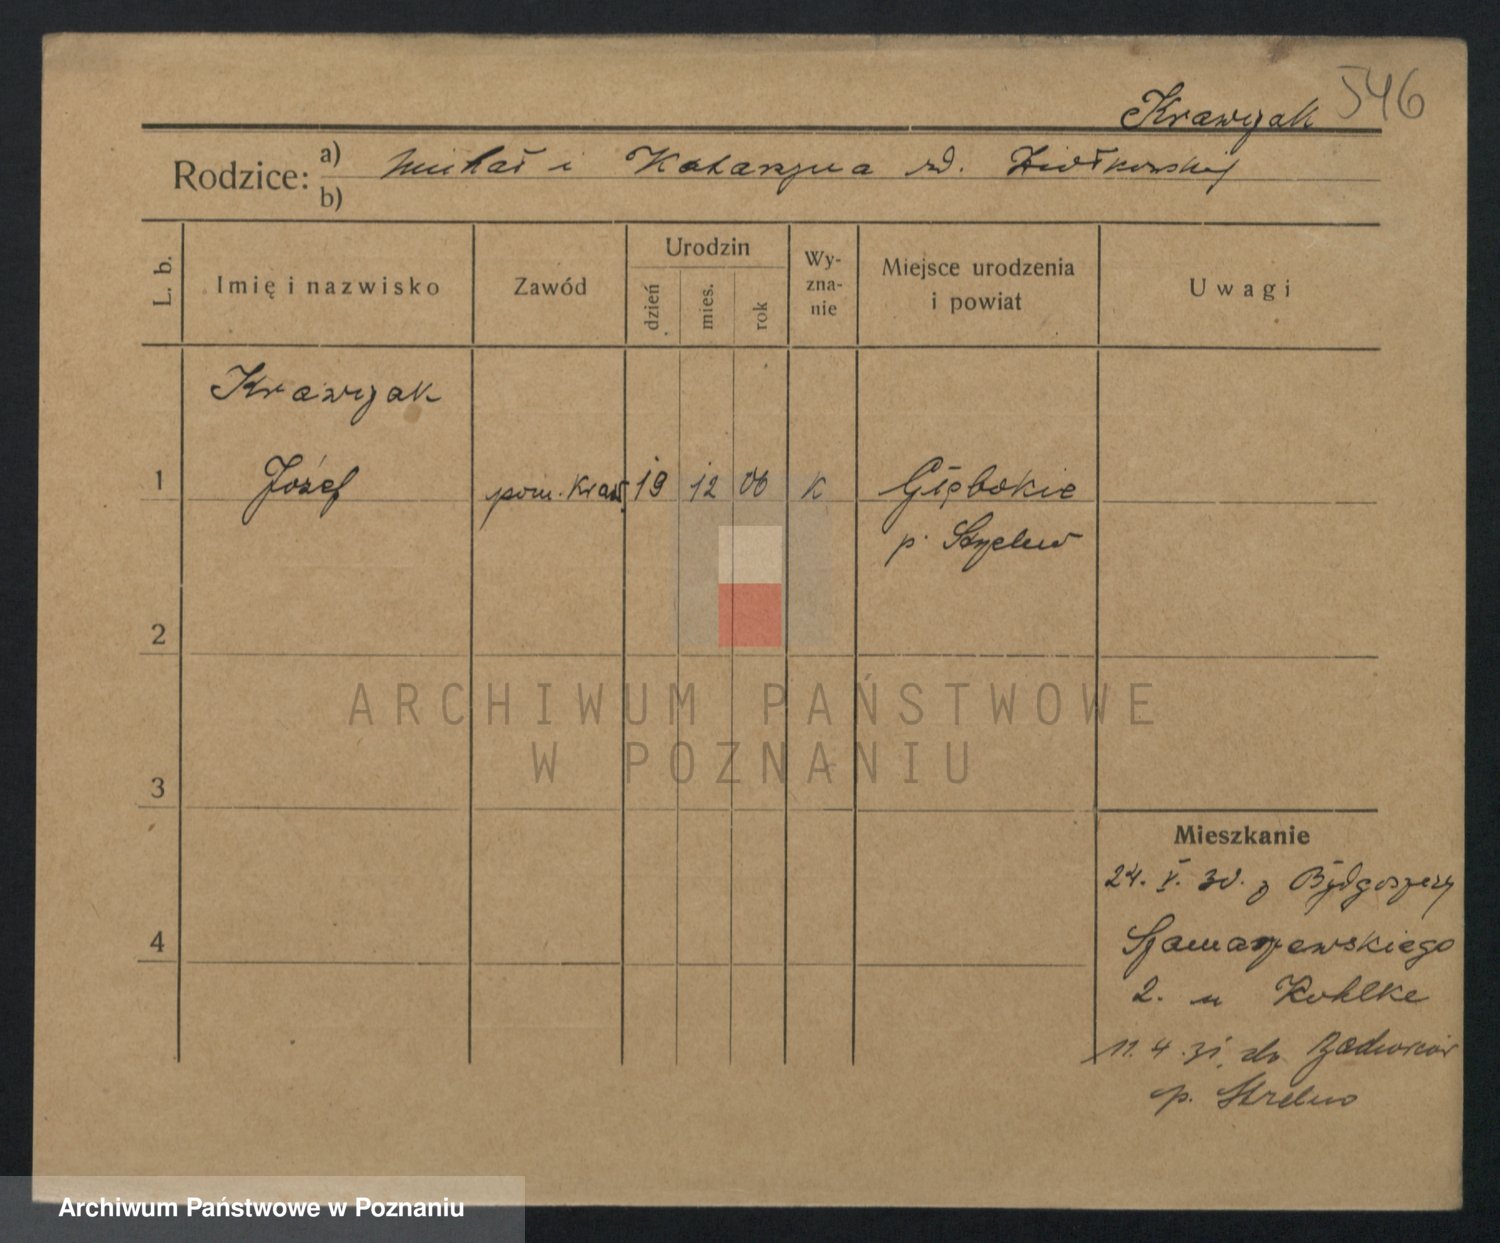 546
Krawczak
Rodzice: a) Michał i Katarzyna zd. Ziółkowskiej
b)
L. b. Imię i nazwisko Zawód Urodzin dzień mies. rok Wy-zna-nie Miejsce urodzenia i powiat Uwagi
Krawczak
1 Józef pom. Kraw. 19 12 06 K Głębokie
p. Strzelno
2
ARCHIWUM PAŃSTWOWE
W POZNANIU
3
Mieszkanie
24. V. 30. z Bydgoszczy
4 Szamarzewskiego
2. u Kohlke
11. 4. 31. do
p. Strzelno
Archiwum Państwowe w Poznaniu